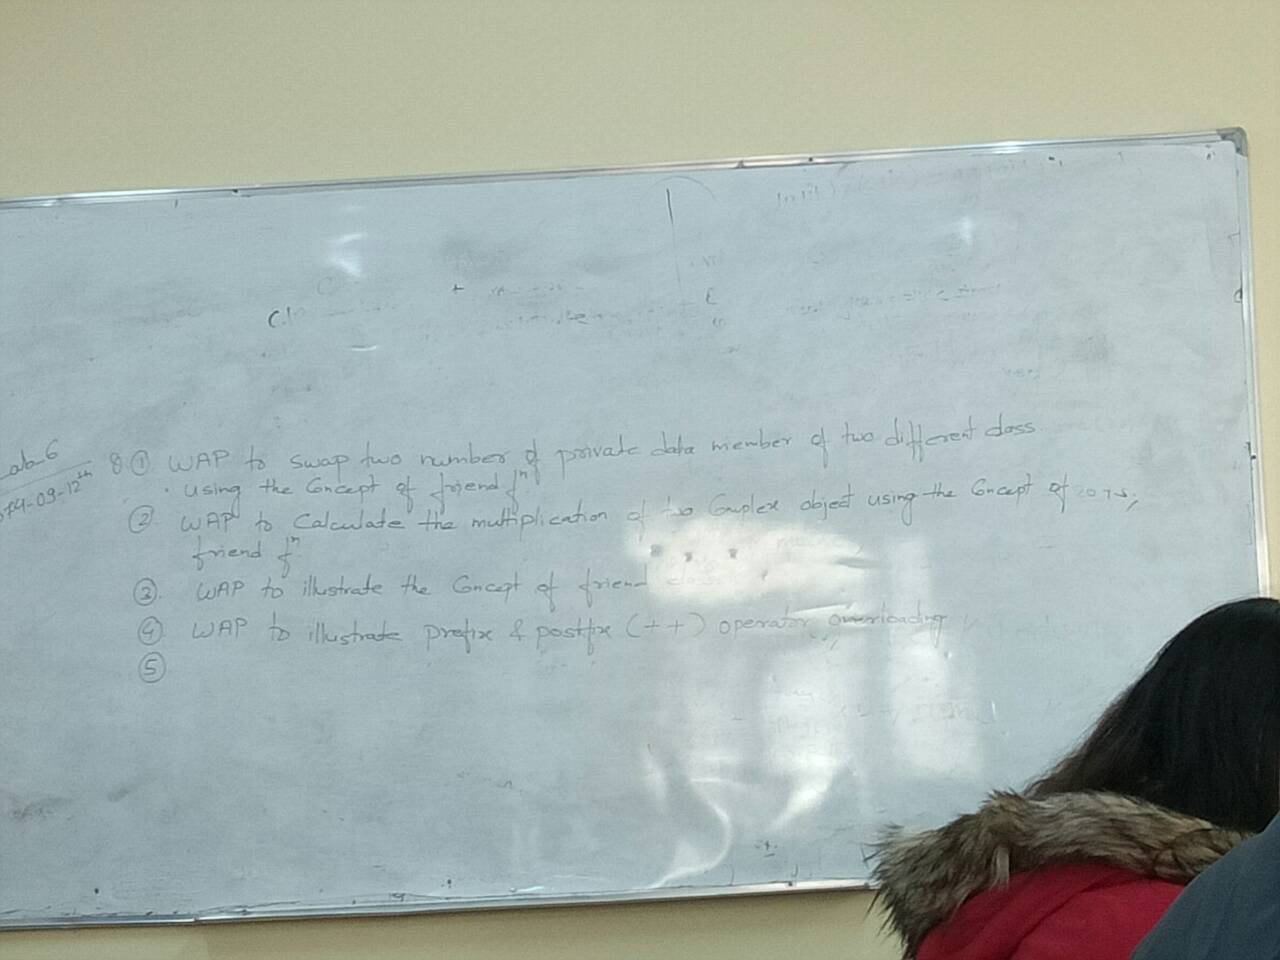 ab-6
74-09-12th
Q ① WAP to swap two number of private data member of two different class
using the Concept of friend fⁿ
② WAP to Calculate the multiplication of two Complex object using the Concept of
friend fⁿ
③. WAP to illustrate the Concept of friend class
④ WAP to illustrate prefix & postfix (++) operator overloading
⑤